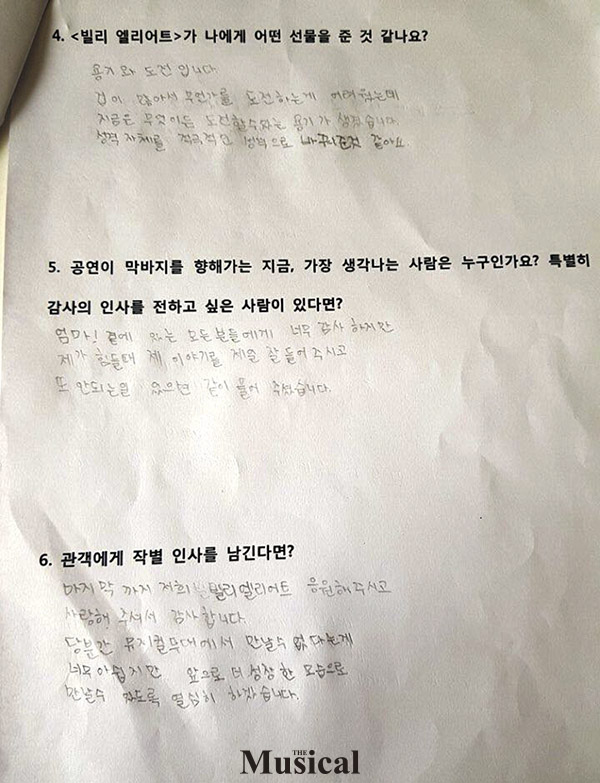 4. <빌리 엘리어트>가 나에게 어떤 선물을 준 것 같나요?
용기와 도전입니다
겁이 많아서 무언가를 도전하는게 어려웠는데
지금은 무엇이든 도전할수있는 용기가 생겼습니다.
성격 자체를 적극적인 성격으로 바꿔준것 같아요.
5. 공연이 막바지를 향해가는 지금, 가장 생각나는 사람은 누구인가요? 특별히
감사의 인사를 전하고 싶은 사람이 있다면?
엄마! 곁에 있는 모든분들에게 너무 감사하지만
제가 힘들때 제 이야기를 제일 잘 들어주시고
또 안되는걸 있으면 같이 풀어 주셨습니다.
6. 관객에게 작별 인사를 남긴다면?
마지막 까지 저희 빌리엘리어트 응원해주시고
사랑해 주셔서 감사합니다.
당분간 뮤지컬무대에서 만날수 없다는게
너무아쉽지만 앞으로 더 성장한 모습으로
만날수 있도록 열심히 하겠습니다.
THE
Musical